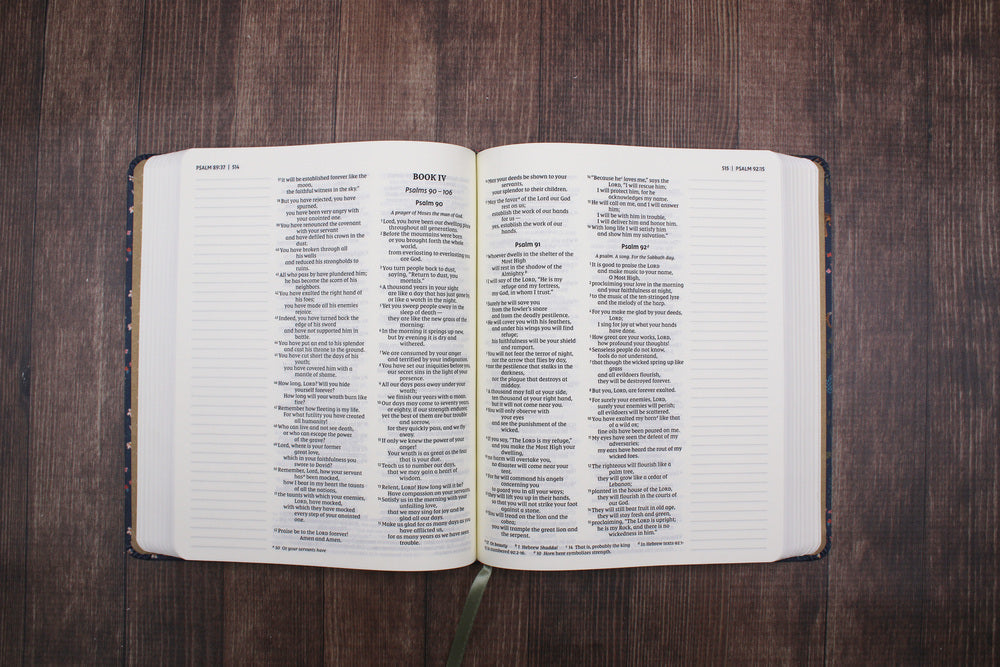 PSALM 89:37 | 514
37 it will be established forever like the
moon,
the faithful witness in the sky.”
38 But you have rejected, you have
spurned,
you have been very angry with
your anointed one.
39 You have renounced the covenant
with your servant
and have defiled his crown in the
dust.
40 You have broken through all
his walls
and reduced his strongholds to
ruins.
41 All who pass by have plundered him;
he has become the scorn of his
neighbors.
42 You have exalted the right hand of
his foes;
you have made all his enemies
rejoice.
43 Indeed, you have turned back the
edge of his sword
and have not supported him in
battle.
44 You have put an end to his splendor
and cast his throne to the ground.
45 You have cut short the days of his
youth;
you have covered him with a
mantle of shame.
46 How long, LORD? Will you hide
yourself forever?
How long will your wrath burn like
fire?
47 Remember how fleeting is my life.
For what futility you have created
all humanity!
48 Who can live and not see death,
or who can escape the power
of the grave?
49 Lord, where is your former
great love,
which in your faithfulness you
swore to David?
50 Remember, Lord, how your servant
has been mocked,
how I bear in my heart the taunts
of all the nations,
51 the taunts with which your enemies,
LORD, have mocked,
with which they have mocked
every step of your anointed
one.
52 Praise be to the LORD forever!
Amen and Amen.
BOOK IV
Psalms 90–106
Psalm 90
A prayer of Moses the man of God.
1 Lord, you have been our dwelling place
throughout all generations.
2 Before the mountains were born
or you brought forth the whole
world,
from everlasting to everlasting you
are God.
3 You turn people back to dust,
saying, “Return to dust, you
mortals.”
4 A thousand years in your sight
are like a day that has just gone by,
or like a watch in the night.
5 Yet you sweep people away in the
sleep of death—
they are like the new grass of the
morning:
6 In the morning it springs up new,
but by evening it is dry and
withered.
7 We are consumed by your anger
and terrified by your indignation.
8 You have set our iniquities before you,
our secret sins in the light of your
presence.
9 All our days pass away under your
wrath;
we finish our years with a moan.
10 Our days may come to seventy years,
or eighty, if our strength endures;
yet the best of them are but trouble
and sorrow,
for they quickly pass, and we fly
away.
11 If only we knew the power of your
anger!
Your wrath is as great as the fear
that is your due.
12 Teach us to number our days,
that we may gain a heart of
wisdom.
13 Relent, LORD! How long will it be?
Have compassion on your servants.
14 Satisfy us in the morning with your
unfailing love,
that we may sing for joy and be
glad all our days.
15 Make us glad for as many days as you
have afflicted us,
for as many years as we have seen
trouble.
a 50 Or your servants have
515 | PSALM 92:15
16 May your deeds be shown to your
servants,
your splendor to their children.
17 May the favor of the Lord our God
rest on us;
establish the work of our hands
for us—
yes, establish the work of our
hands.
Psalm 91
1 Whoever dwells in the shelter of the
Most High
will rest in the shadow of the
Almighty.
2 I will say of the LORD, “He is my
refuge and my fortress,
my God, in whom I trust.”
3 Surely he will save you
from the fowler’s snare
and from the deadly pestilence.
4 He will cover you with his feathers,
and under his wings you will find
refuge;
his faithfulness will be your shield
and rampart.
5 You will not fear the terror of night,
nor the arrow that flies by day,
6 nor the pestilence that stalks in the
darkness,
nor the plague that destroys at
midday.
7 A thousand may fall at your side,
ten thousand at your right hand,
but it will not come near you.
8 You will only observe with
your eyes
and see the punishment of the
wicked.
9 If you say, “The LORD is my refuge,”
and you make the Most High your
dwelling,
10 no harm will overtake you,
no disaster will come near your
tent.
11 For he will command his angels
concerning you
to guard you in all your ways;
12 they will lift you up in their hands,
so that you will not strike your foot
against a stone.
13 You will tread on the lion and the
cobra;
you will trample the great lion and
the serpent.
14 “Because he loves me,” says the
LORD, “I will rescue him;
I will protect him, for he
acknowledges my name.
15 He will call on me, and I will answer
him;
I will be with him in trouble,
I will deliver him and honor him.
16 With long life I will satisfy him
and show him my salvation.”
Psalm 92
A psalm. A song. For the Sabbath day.
1 It is good to praise the LORD
and make music to your name,
O Most High,
2 proclaiming your love in the morning
and your faithfulness at night,
3 to the music of the ten-stringed lyre
and the melody of the harp.
4 For you make me glad by your deeds,
LORD;
I sing for joy at what your hands
have done.
5 How great are your works, LORD,
how profound your thoughts!
6 Senseless people do not know,
fools do not understand,
7 that though the wicked spring up like
grass
and all evildoers flourish,
they will be destroyed forever.
8 But you, LORD, are forever exalted.
9 For surely your enemies, LORD,
surely your enemies will perish;
all evildoers will be scattered.
10 You have exalted my horn like that
of a wild ox;
fine oils have been poured on me.
11 My eyes have seen the defeat of my
adversaries;
my ears have heard the rout of my
wicked foes.
12 The righteous will flourish like a
palm tree,
they will grow like a cedar of
Lebanon;
13 planted in the house of the LORD,
they will flourish in the courts of
our God.
14 They will still bear fruit in old age,
they will stay fresh and green,
15 proclaiming, “The LORD is upright;
he is my Rock, and there is no
wickedness in him.”
a 17 Or beauty b 1 Hebrew Shaddai c 14 That is, probably the king d In Hebrew texts 92:1-
15 is numbered 92:2-16. e 10 Horn here symbolizes strength.